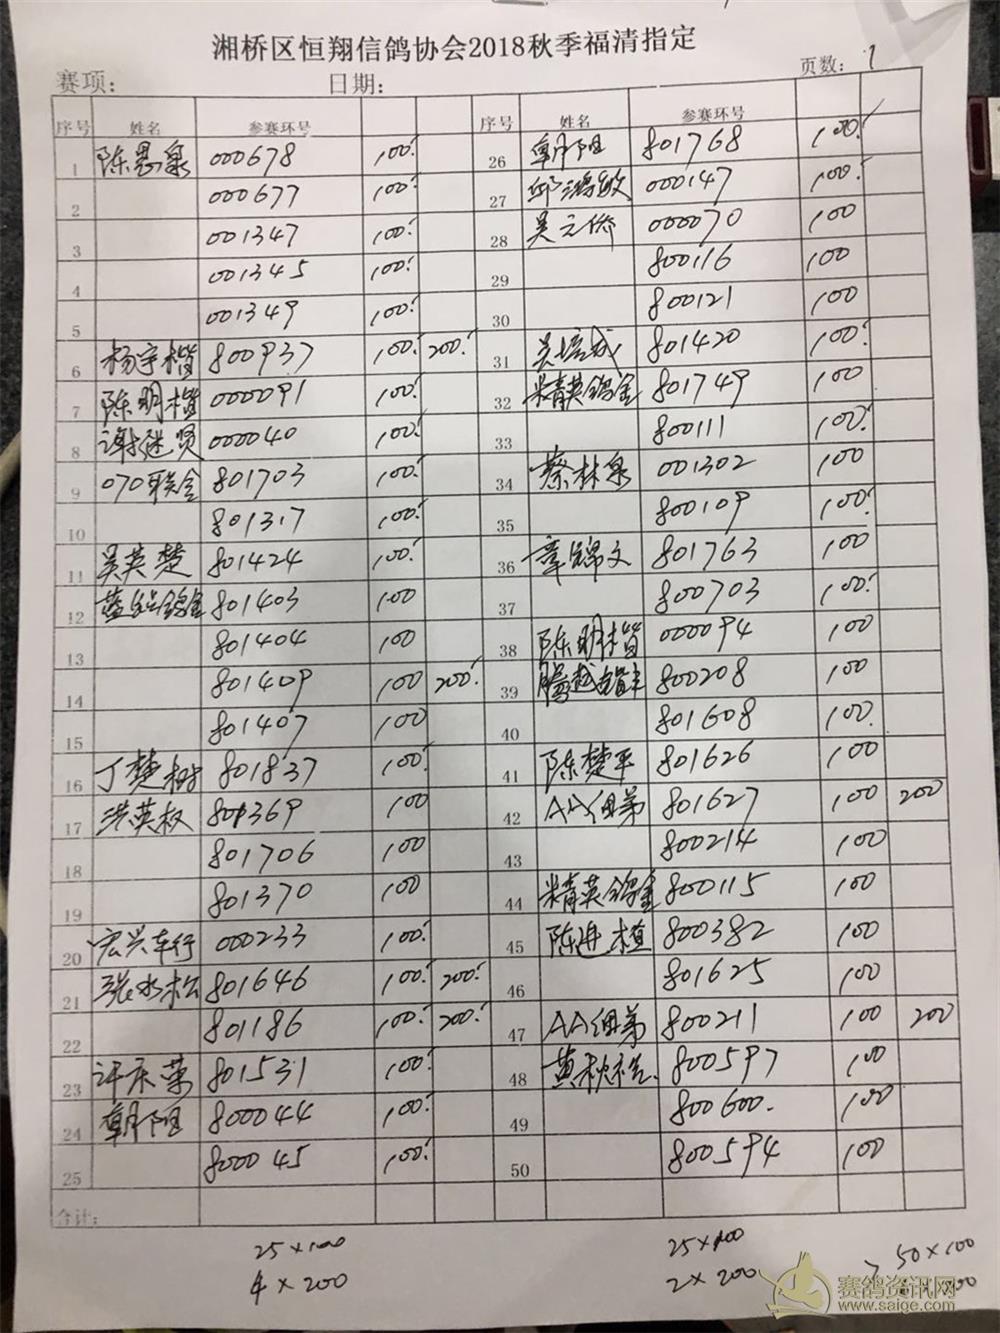 湘桥区恒翔信鸽协会2018秋季福清指定
赛项： 日期： 页数：1
序号 姓名 参赛环号 序号 姓名 参赛环号
1 陈恩泉 000678 100 26 朝阳 801768 100
2 000677 100 27 邱鸿敏 000147 100
3 001347 100 28 吴元侨 000070 100
4 001345 100 29 800116 100
5 001349 100 30 800121 100
6 杨宇楷 800937 100 200 31 吴培成 801420 100
7 陈明楷 000091 100 32 精英鸽舍 801749 100
8 谢继贤 000040 100 33 800111 100
9 070联合 801703 100 34 蔡林泉 001302 100
10 801317 100 35 800109 100
11 吴英楚 801424 100 36 章锦文 801763 100
12 鸽舍 801403 100 37 800703 100
13 801404 100 38 陈明楷 000094 100
14 801409 100 200 39 腾越 800208 100
15 801407 100 40 801608 100
16 丁楚树 801837 100 41 陈楚平 801626 100
17 洪英权 801369 100 42 AA组弟 801627 100 200
18 801706 100 43 800214 100
19 801370 100 44 精英鸽舍 800115 100
20 宏兴车行 000233 100 45 陈进植 800382 100
21 张水松 801646 100 200 46 801625 100
22 801186 100 200 47 AA组弟 800211 100 200
23 许庆荣 801531 100 48 黄秋 800597 100
24 朝阳 800044 100 49 800600 100
25 800045 100 50 800594 100
合计：
25×100 25×100 50×100
4×200 2×200
赛鸽资讯网
www.saige.com